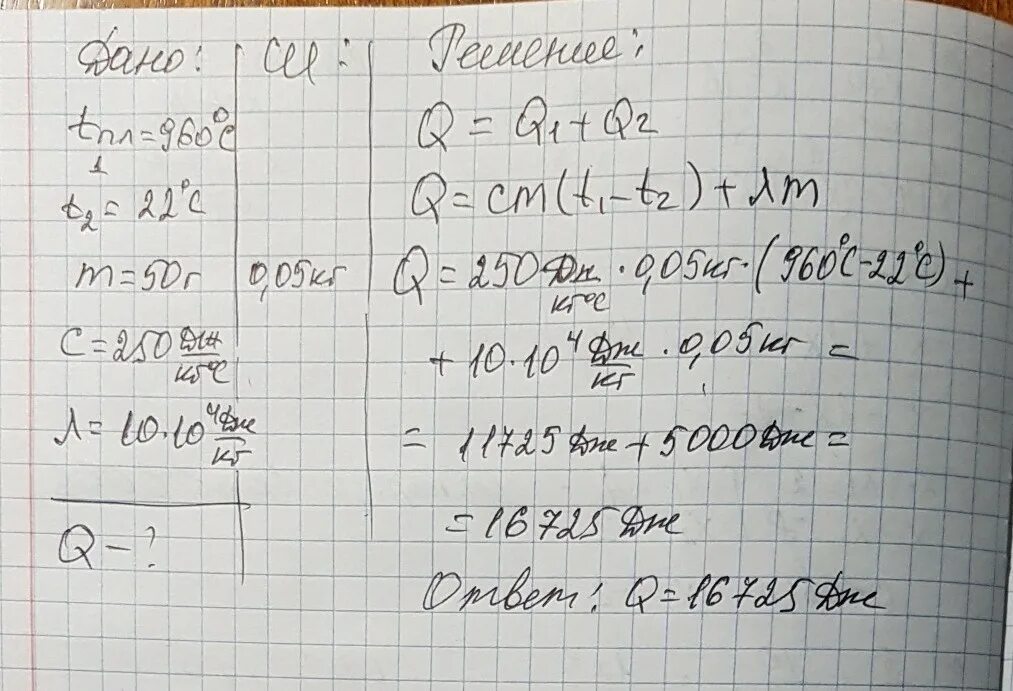 Дано:
tпл = 960°C
1
t₂ = 22°C
m = 50г
C = 250 Дж/кг°C
λ = 10·10⁴ Дж/кг
Q - ?
СИ:
0,05кг
Решение:
Q = Q₁ + Q₂
Q = cm(t₁ - t₂) + λm
Q = 250 Дж/кг°C · 0,05кг · (960°C - 22°C) +
+ 10·10⁴ Дж/кг · 0,05кг =
= 11725 Дж + 5000 Дж =
= 16725 Дж
Ответ: Q = 16725 Дж